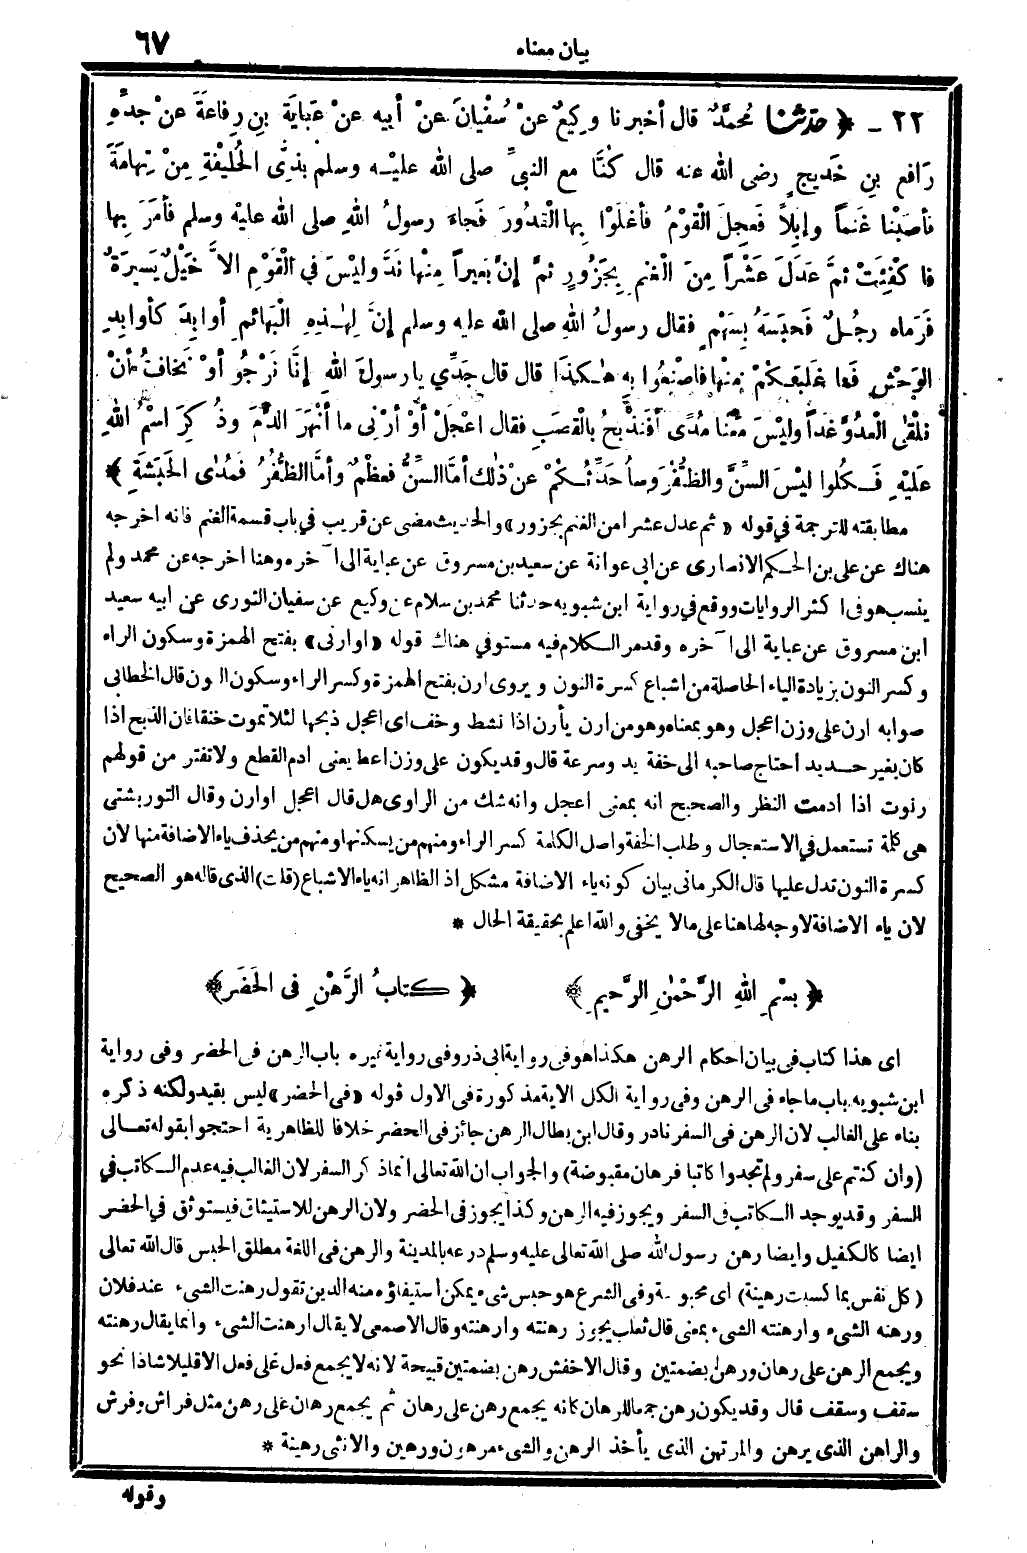 بيان معناه ٦٧
٢٢ - ﴿ حَدَّثَنَا مُحَمَّدٌ قال أخبرنا وكِيعٌ عنْ سُفْيانَ عنْ أبيه عنْ عَبايَةَ بنِ رِفاعَةَ عنْ جدِّهِ
رَافِعِ بنِ خَدِيجٍ رضى الله عنه قال كُنَّا مع النبيِّ صلى الله عليه وسلم بذِي الْحُلَيْفَةِ مِنْ تِهامَةَ
فأصَبْنا غَنماً وإبِلاً فَعجِلَ الْقَوْمُ فأغْلَوْا بِها الْقُدُورَ فَجاءَ رسولُ اللهِ صلى الله عليه وسلم فأمَرَ بِها
فا كْفِئَتْ ثمَّ عَدَلَ عَشْراً مِنَ الْغنمِ بِجَزُورٍ ثمَّ إنَّ بَعيراً مِنْها نَدَّ وليْسَ في الْقَوْمِ الاَّ خَيْلٌ يَسيرَةٌ
فَرَماه رجُلٌ فَحبَسَهُ بِسَهْمٍ فقال رسولُ اللهِ صلى الله عليه وسلم إنَّ لِهٰذِهِ الْبَهائمِ أوابِدَ كأوابِدِ
الوَحْشِ فَما غَلَبَكمْ مِنْها فاصْنَعُوا بِهِ هٰكَذَا قال قال جَدِّي يا رسولَ اللهِ إنَّا نَرْجُو أوْ نَخافُ أنْ
نلْقَى الْعدُوَّ غداً وليْسَ مَعَنا مُدًى أفَنَذْبحُ بالْقَصَبِ فقال اعْجَلْ أوْ أرْنِى ما أنْهَرَ الدَّمَ وذُ كِرَ اسْمُ اللهِ
عَلَيْهِ فَكُلوا ليْسَ السِّنَّ والظُّفْرَ وسأُحَدِّثُكمْ عنْ ذٰلك أمَّا السِّنُّ فَعظْمٌ وأمَّا الظُّفْرُ فَمُدَى الْحَبَشَةِ ﴾
مطابقته للترجمة في قوله « ثم عدل عشرا من الغنم بجزور » والحديث مضى عن قريب في باب قسمة الغنم فانه اخرجه
هناك عن على بن الحكم الانصارى عن ابى عوانة عن سعيد بن مسروق عن عباية الى آخره وهنا اخرجه عن محمد ولم
ينسب هو فى اكثر الروايات ووقع في رواية ابن شبويه حدثنا محمد بن سلام عن وكيع عن سفيان الثورى عن ابيه سعيد
ابن مسروق عن عباية الى آخره وقد مر الكلام فيه مستوفي هناك قوله « اوارنى » بفتح الهمزة وسكون الراء
وكسر النون بزيادة الياء الحاصلة من اشباع كسرة النون ويروى ارن بفتح الهمزة وكسر الراء وسكون النون قال الخطابى
صوابه ارن على وزن اعجل وهو بمعناه وهو من ارن يأرن اذا نشط وخف اى اعجل ذبحها لئلا تموت خنقا فان الذبح اذا
كان بغير حديد احتاج صاحبه الى خفة يد وسرعة قال وقد يكون على وزن اعط يعنى ادم القطع ولا تفتر من قولهم
رنوت اذا ادمت النظر والصحيح انه بمعنى اعجل وانه شك من الراوى هل قال اعجل اوارن وقال التوربشتى
هى كلمة تستعمل في الاستعجال وطلب الخفة واصل الكلمة كسر الراء ومنهم من يسكنها ومنهم من يحذف ياء الاضافة منها لان
كسرة النون تدل عليها قال الكرمانى بيان كونه ياء الاضافة مشكل اذ الظاهر انه ياء الاشباع (قلت) الذى قاله هو الصحيح
لان ياء الاضافة لا وجه لها هنا على مالا يخفى والله اعلم بحقيقة الحال *
﴿ بِسْمِ اللهِ الرَّحْمٰنِ الرَّحِيمِ ﴾ ﴿ كتابُ الرَّهْنِ فى الحَضَرِ ﴾
اى هذا كتاب فى بيان احكام الرهن هكذا هو فى رواية ابى ذر وفى رواية غيره باب الرهن فى الحضر وفى رواية
ابن شبويه باب ماجاء فى الرهن وفى رواية الكل الاية مذكورة فى الاول قوله « فى الحضر » ليس بقيد ولكنه ذكره
بناء على الغالب لان الرهن فى السفر نادر وقال ابن بطال الرهن جائز فى الحضر خلافا للظاهرية احتجوا بقوله تعالى
(وان كنتم على سفر ولم تجدوا كاتبا فرهان مقبوضة) والجواب ان الله تعالى انما ذكر السفر لان الغالب فيه عدم الكاتب في
السفر وقد يوجد الكاتب فى السفر ويجوز فيه الرهن وكذا يجوز فى الحضر ولان الرهن للاستيثاق فيستوثق في الحضر
ايضا كالكفيل وايضا رهن رسول الله صلى الله تعالى عليه وسلم درعه بالمدينة والرهن فى اللغة مطلق الحبس قال الله تعالى
(كل نفس بما كسبت رهينة) اى محبوسة وفى الشرع هو حبس شىء يمكن استيفاؤه منه الدين تقول رهنت الشىء عند فلان
ورهنه الشىء وارهنته الشىء بمعنى قال ثعلب يجوز رهنته وارهنته وقال الاصمعى لا يقال ارهنت الشىء وانما يقال رهنته
ويجمع الرهن على رهان ورهن بضمتين وقال الاخفش رهن بضمتين قبيحة لانه لا يجمع فعل على فعل الا قليلا شاذا نحو
سقف وسقف قال وقد يكون رهن جمعا للرهان كانه يجمع رهن على رهان ثم يجمع رهان على رهن مثل فراش وفرش
والراهن الذى يرهن والمرتهن الذى يأخذ الرهن والشىء مرهون ورهين والانثى رهينة *
وقوله